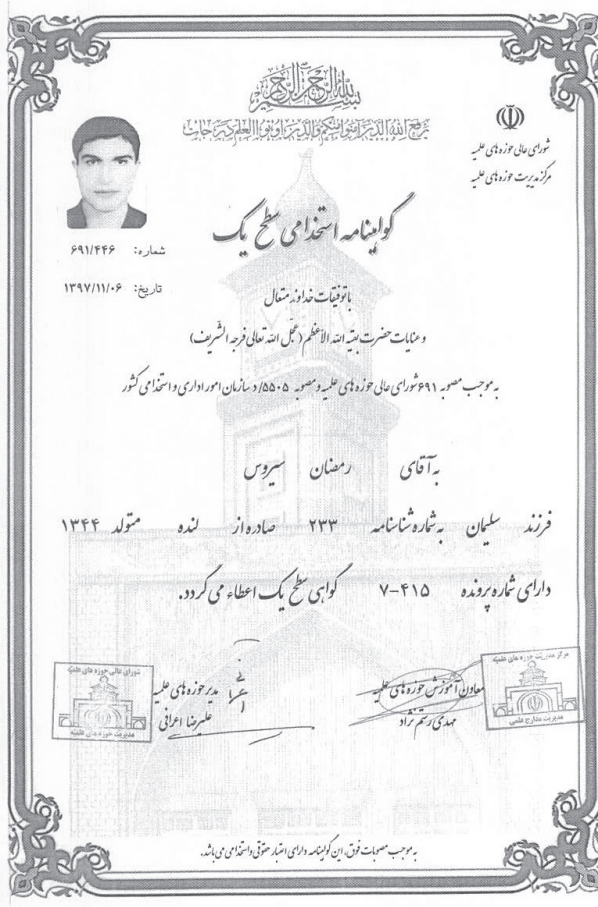 بسم الله الرحمن الرحیم
یرفع الله الذین آمنوا منکم والذین اوتوا العلم درجات
شورای عالی حوزه های علمیه
مرکز مدیریت حوزه های علمیه
گواهینامه استخدامی سطح یک
شماره: ۶۹۱/۴۴۶
تاریخ: ۱۳۹۷/۱۱/۰۶
با توفیقات خداوند متعال
و عنایات حضرت بقیه الله الأعظم (عجّل الله تعالی فرجه الشّریف)
به موجب مصوبه ۶۹۱ شورای عالی حوزه های علمیه و مصوبه ۵۵۰۵/د سازمان امور اداری و استخدامی کشور
به آقای رمضان سیروس
فرزند سلیمان به شماره شناسنامه ۲۳۳ صادره از لنده متولد ۱۳۴۴
دارای شماره پرونده ۴۱۵-۷ گواهی سطح یک اعطاء می گردد.
مرکز مدیریت حوزه های علمیه
مدیریت مدارج علمی
معاون آموزش حوزه های علمیه
مهدی رستم نژاد
مدیر حوزه های علمیه
علیرضا اعرافی
شورای عالی حوزه های علمیه
مدیریت حوزه های علمیه
به موجب مصوبات فوق، این گواهینامه دارای اعتبار حقوقی و استخدامی می باشد.